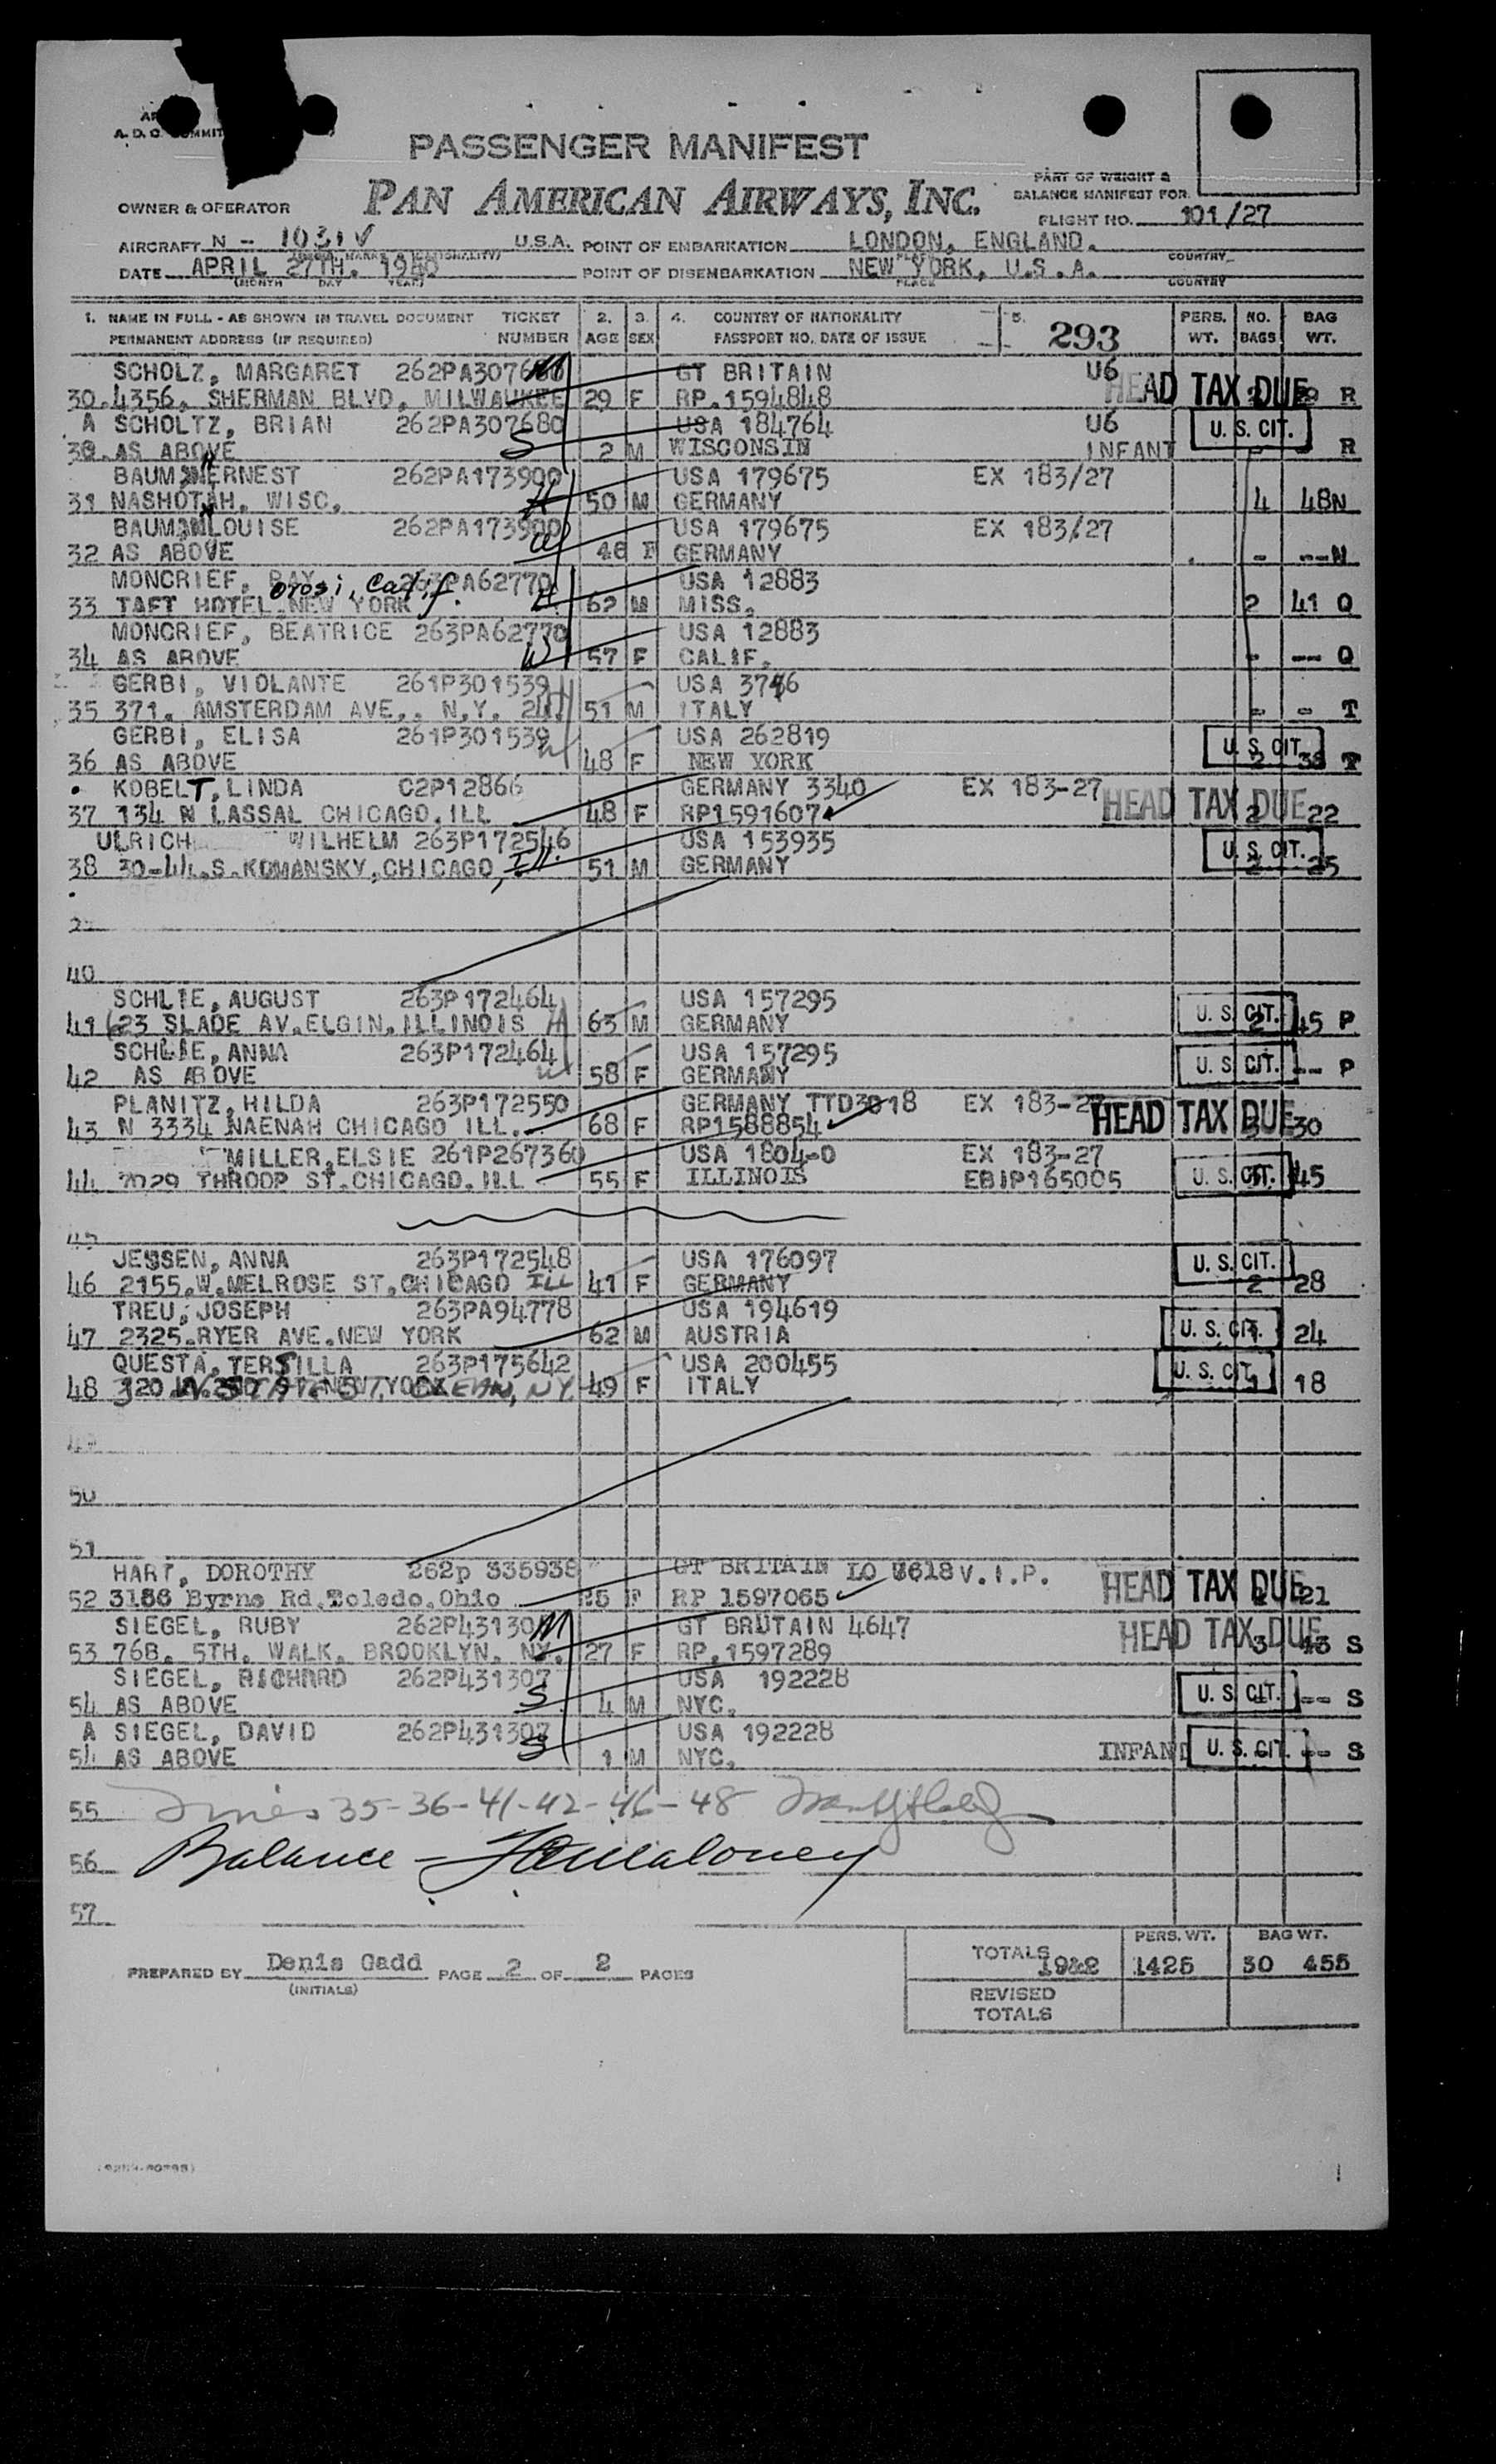 PASSENGER MANIFEST
PAN AMERICAN AIRWAYS, INC.
PART OF WEIGHT &
BALANCE MANIFEST FOR
OWNER & OPERATOR
FLIGHT NO. 101/27
AIRCRAFT N - 1031V U.S.A. POINT OF EMBARKATION LONDON, ENGLAND.
DATE APRIL 27TH. POINT OF DISEMBARKATION NEW YORK, U.S.A.
(MONTH DAY YEAR) PLACE COUNTRY
1. NAME IN FULL - AS SHOWN IN TRAVEL DOCUMENT TICKET 2. 3. 4. COUNTRY OF NATIONALITY 5. 293 PERS. NO. BAG
PERMANENT ADDRESS (IF REQUIRED) NUMBER AGE SEX PASSPORT NO. DATE OF ISSUE WT. BAGS WT.
SCHOLZ, MARGARET GT BRITAIN U6
30.4356. SHERMAN BLVD, MILWAUKEE 29 F RP.1594848 HEAD TAX DUE R
A SCHOLTZ, BRIAN 262PA307680 USA 184764 U6 U. S. CIT.
30. AS ABOVE S 2 M WISCONSIN INFANT R
ERNEST 262PA173900 USA 179675 EX 183/27
31 NASHOTAH, WISC. H 50 M GERMANY 4 48N
LOUISE 262PA173900 USA 179675 EX 183/27
32 AS ABOVE W 48 F GERMANY - --N
MONCRIEF, RAY 263PA62770 USA 12883
Orosi, Calif.
33 TAFT HOTEL NEW YORK H 62 M MISS. 2 41 Q
MONCRIEF, BEATRICE 263PA62770 USA 12883
34 AS ABOVE W 57 F CALIF. - -- Q
GERBI, VIOLANTE 261P301539 USA
35 371. AMSTERDAM AVE., N.Y. 24. 51 M ITALY - - T
GERBI, ELISA 261P301539 USA 262819 U. S. CIT.
36 AS ABOVE W 48 F NEW YORK 2 38 T
KOBELT, LINDA C2P12866 GERMANY 3340 EX 183-27 HEAD TAX DUE
37 134 N LASSAL CHICAGO.ILL 48 F RP1591607 2 22
ULRICH WILHELM 263P172546 USA 153935 U. S. CIT.
38 30-44.S.KOMANSKY,CHICAGO, Ill. 51 M GERMANY 2 25
40
SCHLIE, AUGUST 263P172464 USA 157295 U. S. CIT.
41 623 SLADE AV.ELGIN.ILLINOIS H 63 M GERMANY 2 45 P
SCHLIE, ANNA 263P172464 USA 157295 U. S. CIT.
42 AS ABOVE W 58 F GERMANY -- P
PLANITZ, HILDA 263P172550 GERMANY TTD3018 EX 183-27 HEAD TAX DUE
43 N 3334 NAENAH CHICAGO ILL. 68 F RP1588854 30
MILLER,ELSIE 261P267360 USA 1804-0 EX 183-27
44 7029 THROOP ST.CHICAGO.ILL 55 F ILLINOIS EBIP165005 U. S. CIT. 45
45
JESSEN, ANNA 263P172548 USA 176097 U. S. CIT.
46 2155.W.MELROSE ST.CHICAGO ILL 41 F GERMANY 2 28
TREU, JOSEPH 263PA94778 USA 194619
47 2325.RYER AVE.NEW YORK 62 M AUSTRIA U. S. CIT. 24
QUESTA, TERSILLA 263P175642 USA 200455 U. S. CIT.
48 320 N. STATE ST, OLEAN, NY. 49 F ITALY 1 18
49
50
51
HART, DOROTHY 262p 335938 GT BRITAIN V.I.P.
52 3156 Byrne Rd.Toledo.Ohio 25 F RP 1597065 HEAD TAX DUE 21
SIEGEL, RUBY M GT BRUTAIN 4647 HEAD TAX DUE
53 768. 5TH. WALK. BROOKLYN. NY. 27 F RP.1597289 3 43 S
SIEGEL, RICHARD 262P431307 USA 192228 U. S. CIT.
54 AS ABOVE S 4 M NYC. -- S
A SIEGEL, DAVID 262P431307 USA 192228
54 AS ABOVE S 1 M NYC. INFANT U. S. CIT. -- S
55 35-36-41-42-46-48
56 Balance -
57
PERS. WT. BAG WT.
PREPARED BY Denis Gadd PAGE 2 OF 2 PAGES TOTALS 1425 30 455
(INITIALS)
REVISED
TOTALS